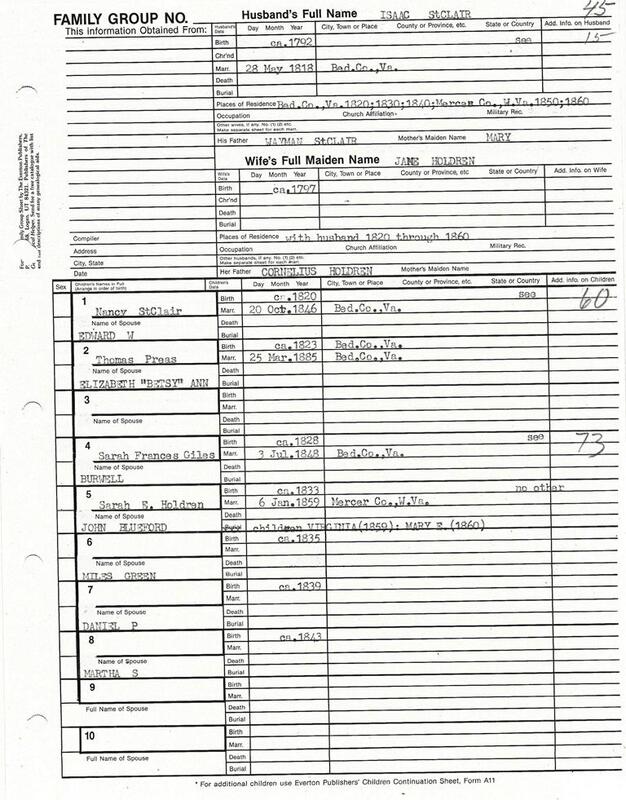 45
FAMILY GROUP NO.
Husband's Full Name ISAAC StCLAIR
This Information Obtained From:
Husband's Data Day Month Year City, Town or Place County or Province, etc. State or Country Add. Info. on Husband
Birth ca.1792 see 15
Chr'nd
Marr. 28 May 1818 Bed.Co.,Va.
Death
Burial
Places of Residence Bed.Co.,Va.1820;1830;1840;Mercer Co,W.Va.1850;1860
Occupation Church Affiliation Military Rec.
Other wives, if any. No. (1) (2) etc.
Make separate sheet for each marr.
His Father WAYMAN StCLAIR Mother's Maiden Name MARY
Wife's Full Maiden Name JANE HOLDREN
Wife's Data Day Month Year City, Town or Place County or Province, etc. State or Country Add. Info. on Wife
Birth ca.1797
Chr'nd
Death
Burial
Compiler
Places of Residence with husband 1820 through 1860
Address
Occupation Church Affiliation Military Rec.
City, State
Other husbands, if any. No. (1) (2) etc.
Make separate sheet for each marr.
Date
Her Father CORNELIUS HOLDREN Mother's Maiden Name
Sex Children's Names in Full
(Arrange in order of birth) Children's Data Day Month Year City, Town or Place County or Province, etc. State or Country Add. info on Children
1 Birth ca.1820 see 60
Nancy StClair Marr. 20 Oct.1846 Bed.Co.,Va.
Name of Spouse Death
EDWARD W Burial
2 Birth ca.1823 Bed.Co.,Va.
Thomas Preas Marr. 25 Mar.1885 Bed.Co.,Va.
Name of Spouse Death
ELIZABETH "BETSY" ANN Burial
3 Birth
Marr.
Name of Spouse Death
Burial
4 Birth ca.1828 see 73
Sarah Frances Giles Marr. 3 Jul.1848 Bed.Co.,Va.
Name of Spouse Death
BURWELL Burial
5 Birth ca.1833 no other
Sarah E. Holdren Marr. 6 Jan.1859 Mercer Co.,W.Va.
Name of Spouse Death
JOHN BLUEFORD Burial children VIRGINIA(1859); MARY E.(1860)
6 Birth ca.1835
Marr.
Name of Spouse Death
MILES GREEN Burial
7 Birth ca.1839
Marr.
Name of Spouse Death
DANIEL P Burial
8 Birth ca.1843
Marr.
Name of Spouse Death
MARTHA S Burial
9 Birth
Marr.
Full Name of Spouse Death
Burial
10 Birth
Marr.
Full Name of Spouse Death
Burial
* For additional children use Everton Publishers' Children Continuation Sheet, Form A11
Group Sheet by The Everton Publishers,
Logan, UT 84321. Publishers of The
Helper. Send for a free catalogue with list
and descriptions of many genealogical aids.